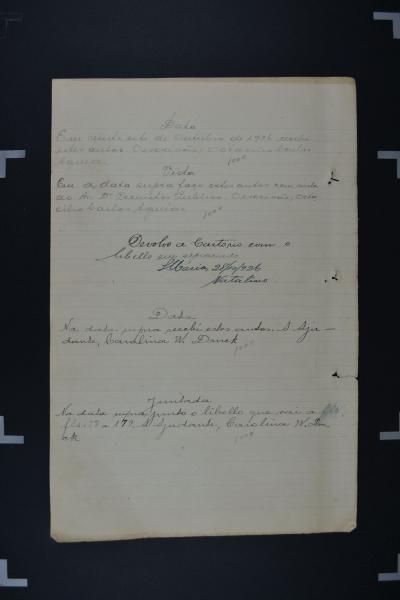 Data
Em vinte oito de Outubro de 1926 recebi
estes autos. O escrivão,
1000
Vista
Em a data supra faço estes autos com vista
ao Sr. Dr. Promotor Publico. O escrivão,
1000
Devolvo a Cartorio com o
libello em separado
S. Maria, 28/10/926
Data
Na data supra recebi estes autos. A Aju-
dante, Carolina W. Druck
1000
Juntada
Na data supra junto o libello que vai a fls.
fls. 178 a 179. A Ajudante, Carolina W. Dru
ck
1000